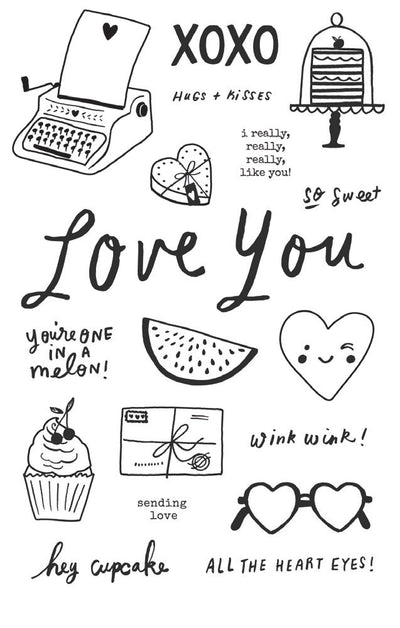 XOXO
HUGS + KISSES
i really,
really,
really,
like you!
so sweet
Love You
you're ONE
IN A
melon!
wink wink!
sending
love
hey cupcake
ALL THE HEART EYES!